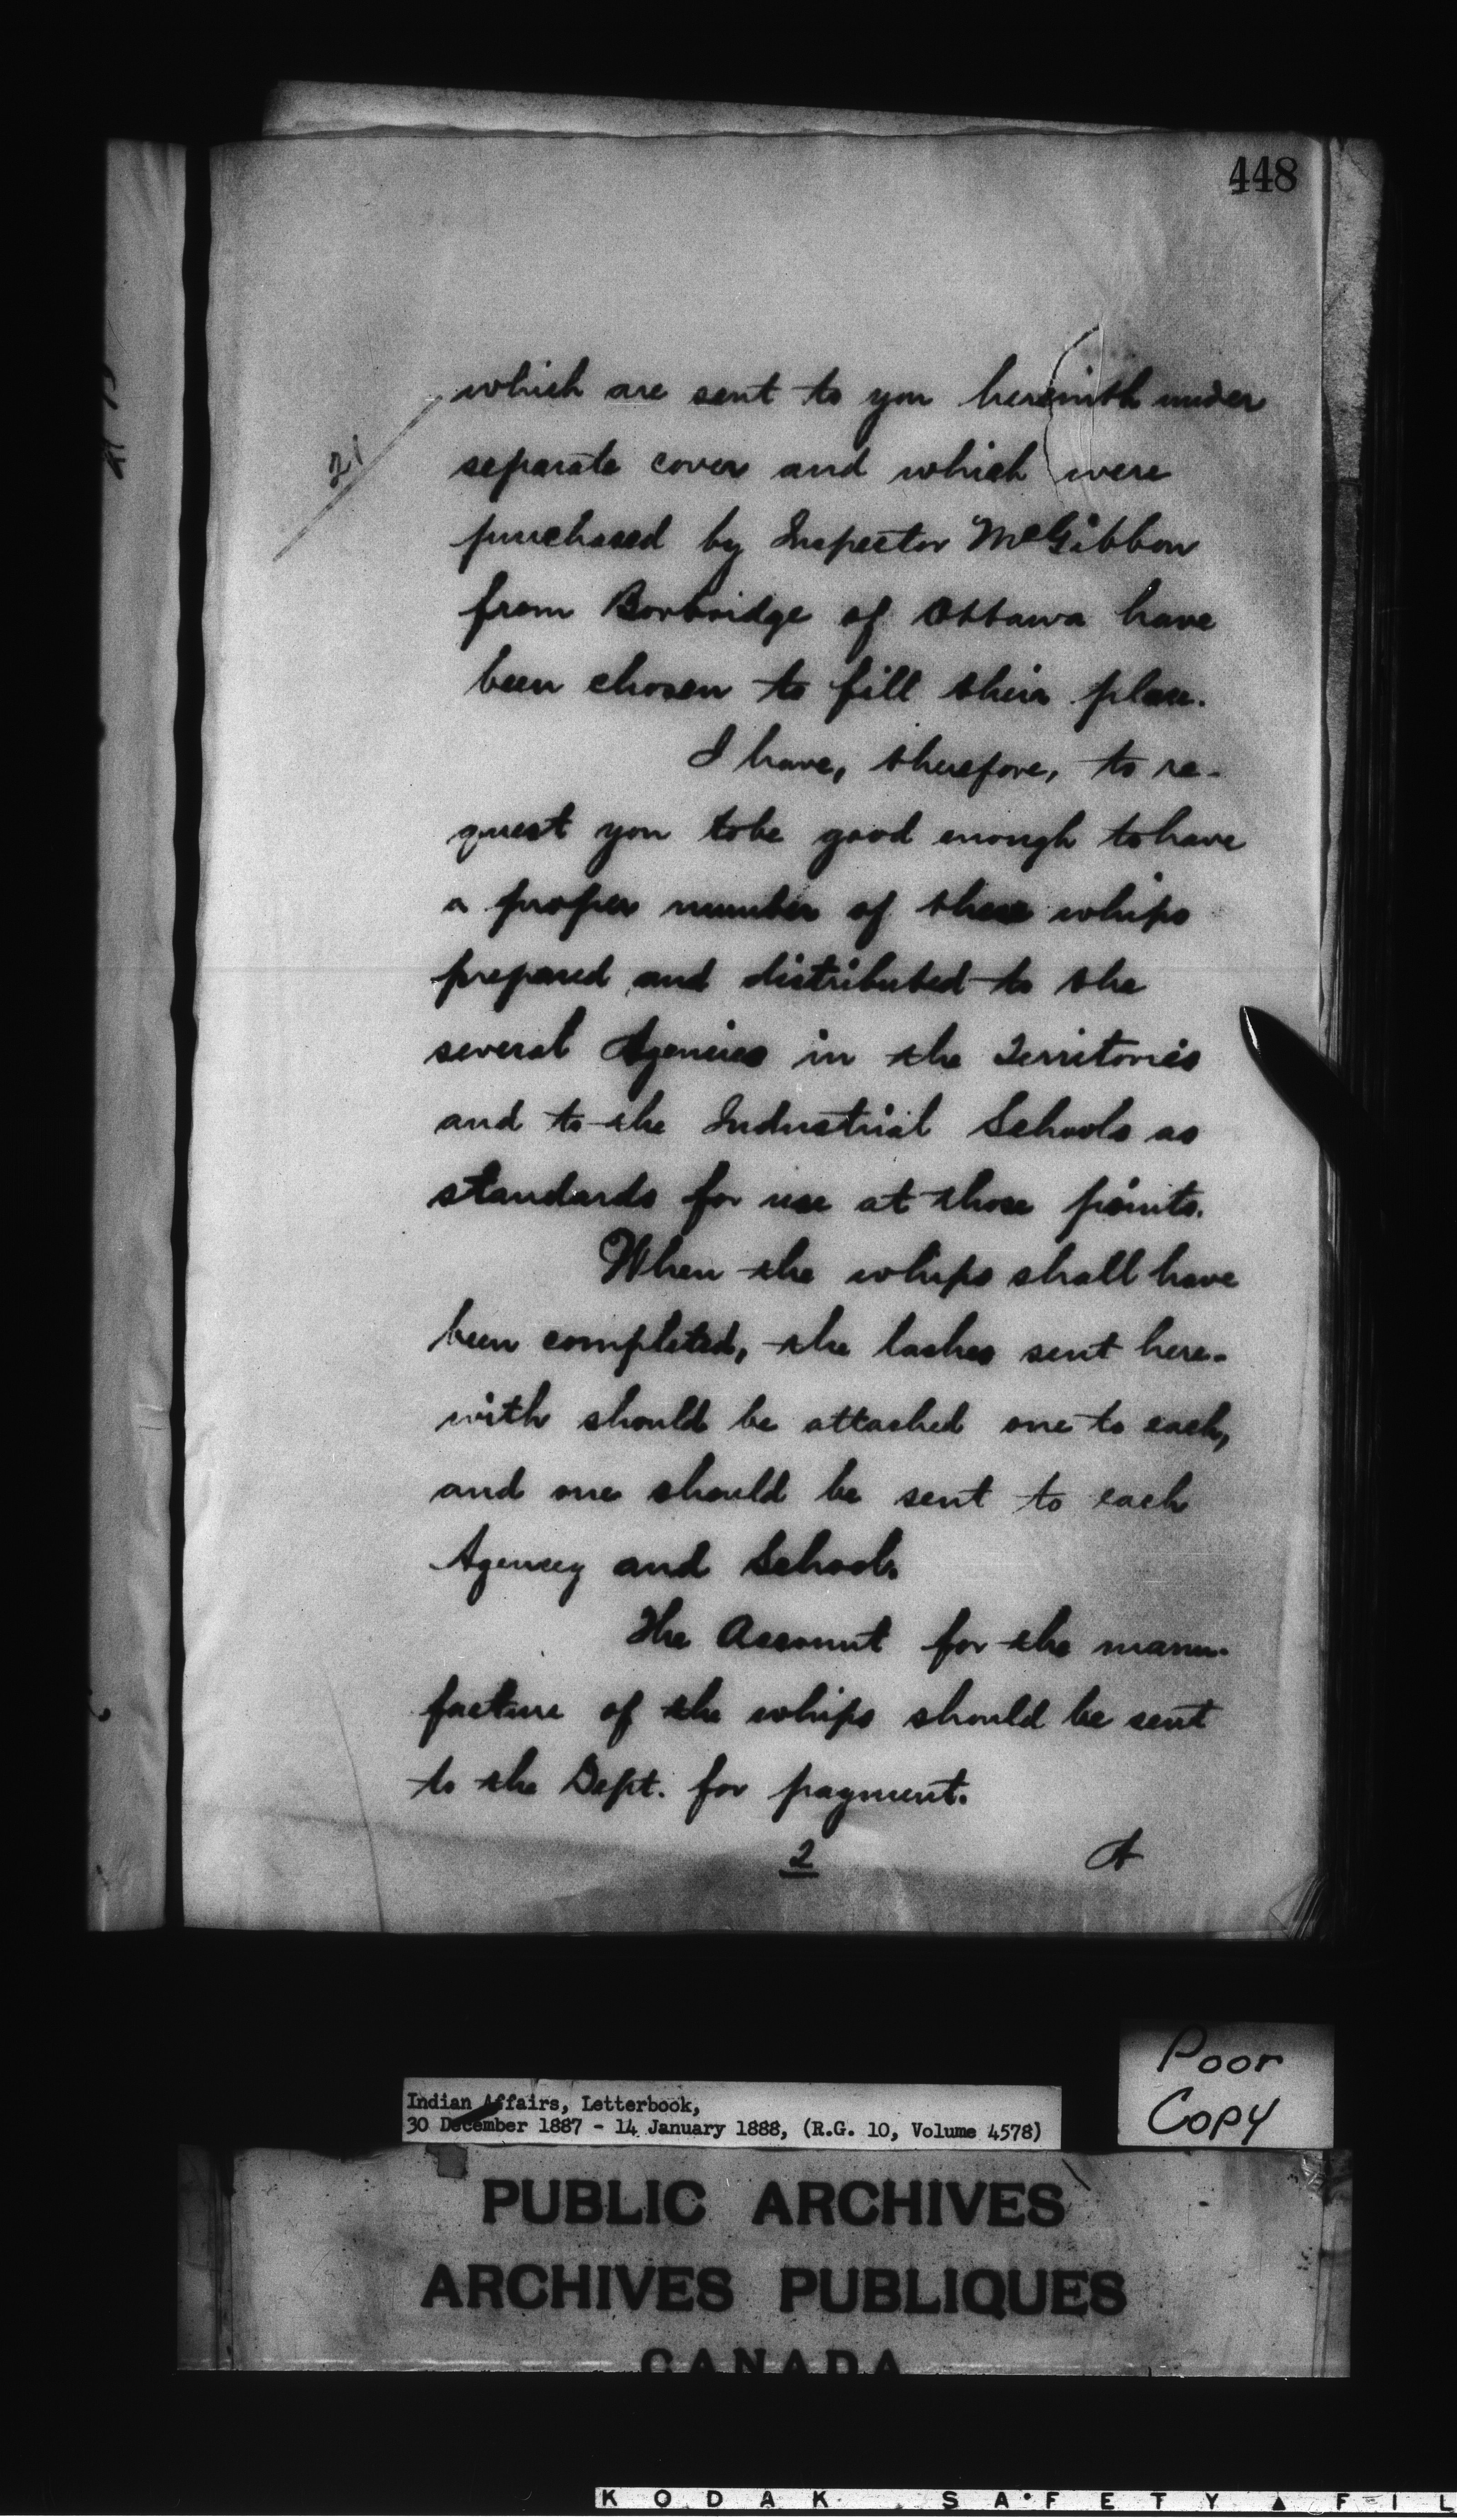 448
which are sent to you herewith under
21
separate cover and which were
purchased by Inspector McGibbon
from Borbridge of Ottawa have
been chosen to fill their place.
I have, therefore, to re-
quest you to be good enough to have
a proper number of these whips
prepared and distributed to the
several Agencies in the Territories
and to the Industrial Schools as
standards for use at those points.
When the whips shall have
been completed, the lashes sent here-
with should be attached one to each,
and one should be sent to each
Agency and School.
The Account for the manu-
facture of the whips should be sent
to the Dept. for payment.
2 A
Poor
Copy
Indian Affairs, Letterbook,
30 December 1887 - 14 January 1888, (R.G. 10, Volume 4578)
PUBLIC ARCHIVES
ARCHIVES PUBLIQUES
CANADA
KODAK SAFETY FIL